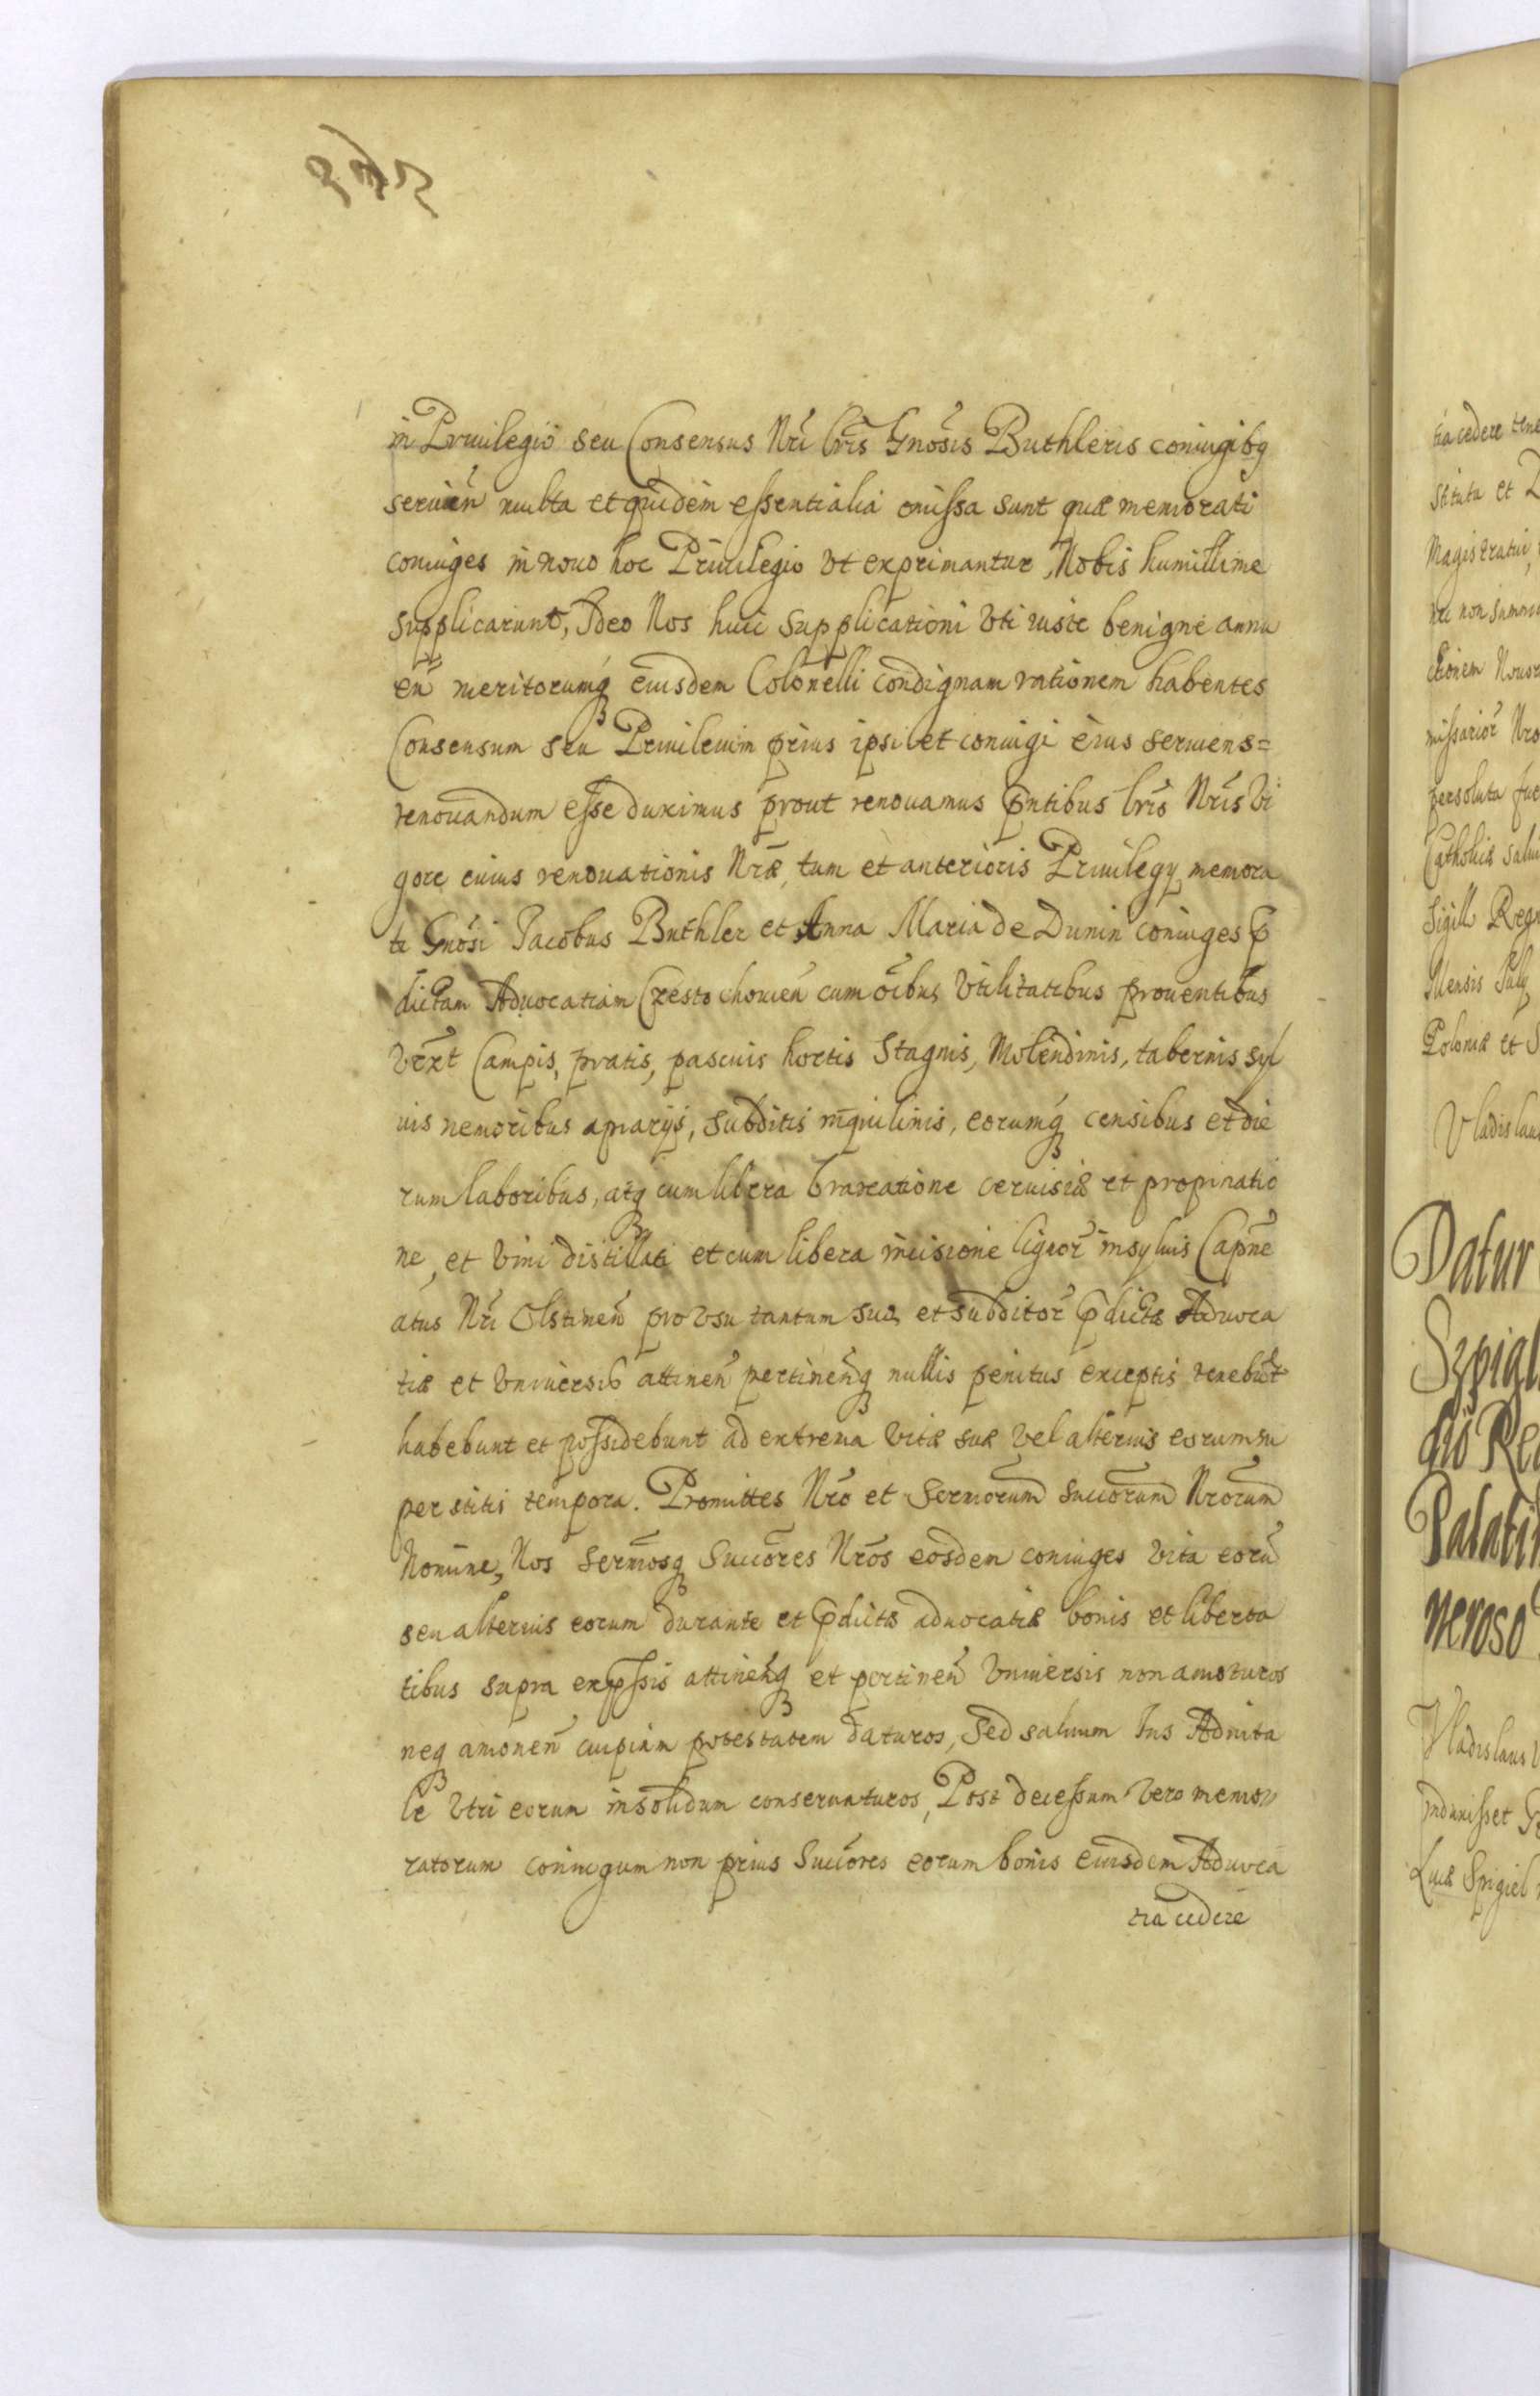 in Priuilegio seu Consensus Nri lris Gnosis Buthleris coniugibq
seruien multa et quidem essentialia omissa sunt quæ memorati
coniuges in nouo hoc Priuilegio vt exprimantur, Nobis humillime
supplicarunt, Ideo Nos huic supplicationi vti iuste benigne annu
en meritorumq eiusdem Colonelli condignam rationem habentes
Consensum seu Priuileuim prius ipsi et coniugi eius seruiens=
renouandum esse duximus prout renouamus pntibus lris Nris Vi
gore cuius renouationis Nræ, tum et anterioris Priuilegy memora
ti Gnosi Jacobus Buthler et Anna Maria de Dunin coniuges p
dictam Aduocatiam Czestochouien cum oibus vtilitatibus prouentibus
vtext Campis, pratis, pascuis hortis stagnis, Molendinis, tabernis syl
uis nemoribus apiarijs, subditis inquilinis, eorumq censibus et die
rum laboribus, atq cum libera braxatione ceruisiæ et propinatio
ne, et vini distillati et cum libera incisione lignor in syluis Capne
atus Nri Olstinen pro vsu tantum suo et subditor pdictæ Aduoca
tiæ et vniuersis attinen pertinenq nullis penitus exceptis tenebut
habebunt et possidebunt ad extrema vitæ suæ vel alterius eorum su
perstitis tempora. Promittes Nro et sermorum succorum Nrorum
Nomine, Nos sermosq Succores Nros eosdem coniuges vita eoru
seu alterius eorum durante et pdictæ aduocatiæ bonis et liberta
tibus supra expssis attinenq et pertinen vniuersis non amoturos
neq amonen cuipiam potestatem daturos, sed saluum Ius Aduita
le vtri eorum insolidum conseruaturos, Post decessum vero memo
ratorum coniugum non prius Succores eorum bonis eiusdem Aduoca
tia cedere
tia cedere
stituta et
Magistratui,
non summa
missarior Nro
persoluta fue
Catholicæ salui
Sigill Regn
Mensis July
Poloniæ et S
Vladislaus
Datur
Szpigl
gio Re
Palatin
neroso
Vladislaus
induxisset
Lucæ Spigiel